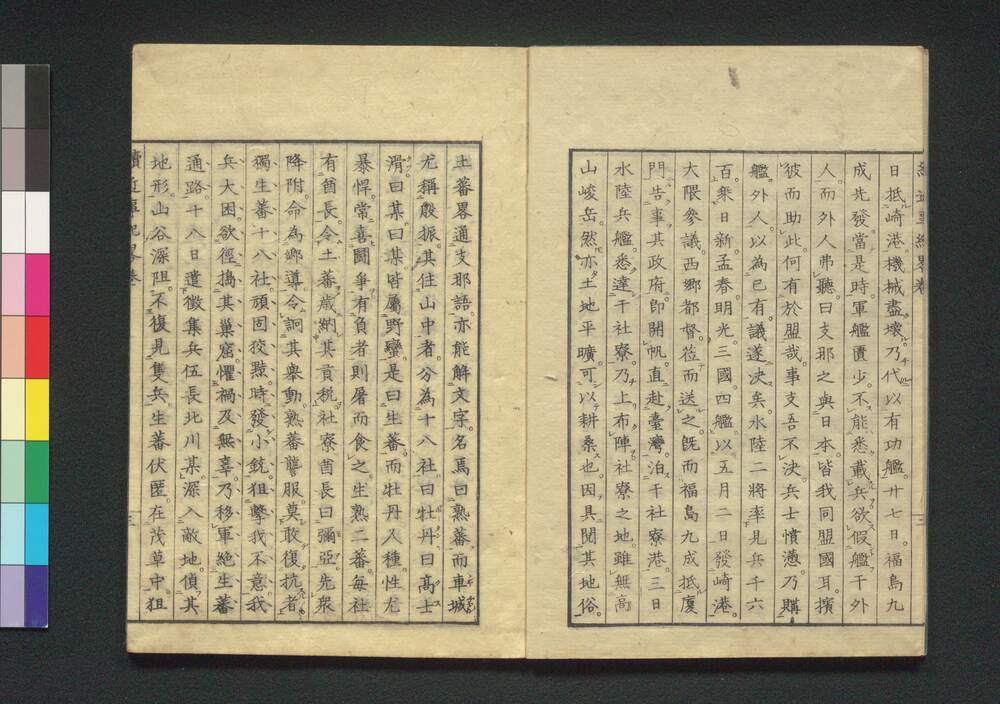 日抵崎港機械盡壞乃代以有功艦廿七日福島九
成先發當是時軍艦匱少不能悉載兵欲假艦于外
人而外人弗聽曰支那之與日本皆我同盟國耳擯
彼而助此何有於盟哉事支吾不決兵士憤懣乃購
艦外人以為已有議遂決矣水陸二將率見兵千六
百衆日新孟春明光三國四艦以五月二日發崎港
大隈參議西鄉都督莅而送之既而福島九成抵廈
門告事其政府即開帆直赴臺灣泊于社寮港三日
水陸兵艦悉達于社寮乃上布陣社寮之地雖無高
山峻岳然亦土地平曠可以耕桑也因具聞其地俗
土蕃畧通支那語亦能解文字名焉曰熟蕃而車城
尤稱殷振其住山中者分為十八社曰牡丹曰高士
滑曰某曰某皆屬野蠻是曰生蕃而牡丹人種性尤
暴悍常喜鬪爭有負者則屠而食之生熟二蕃每社
有酋長令土蕃歲納其貢稅社寮酋長曰彌亞先衆
降附命為鄉導令詗其舉動熟蕃讋服莫敢復抗者
獨生蕃十八社頑固狡黠時發小銃狙擊我不意我
兵大困欲徑搗其巢窟懼禍及無辜乃移軍絶生蕃
通路十八日遣徵集兵伍長北川某深入敵地偵其
地形山谷深阻不復見隻兵生蕃伏匿在茂草中狙